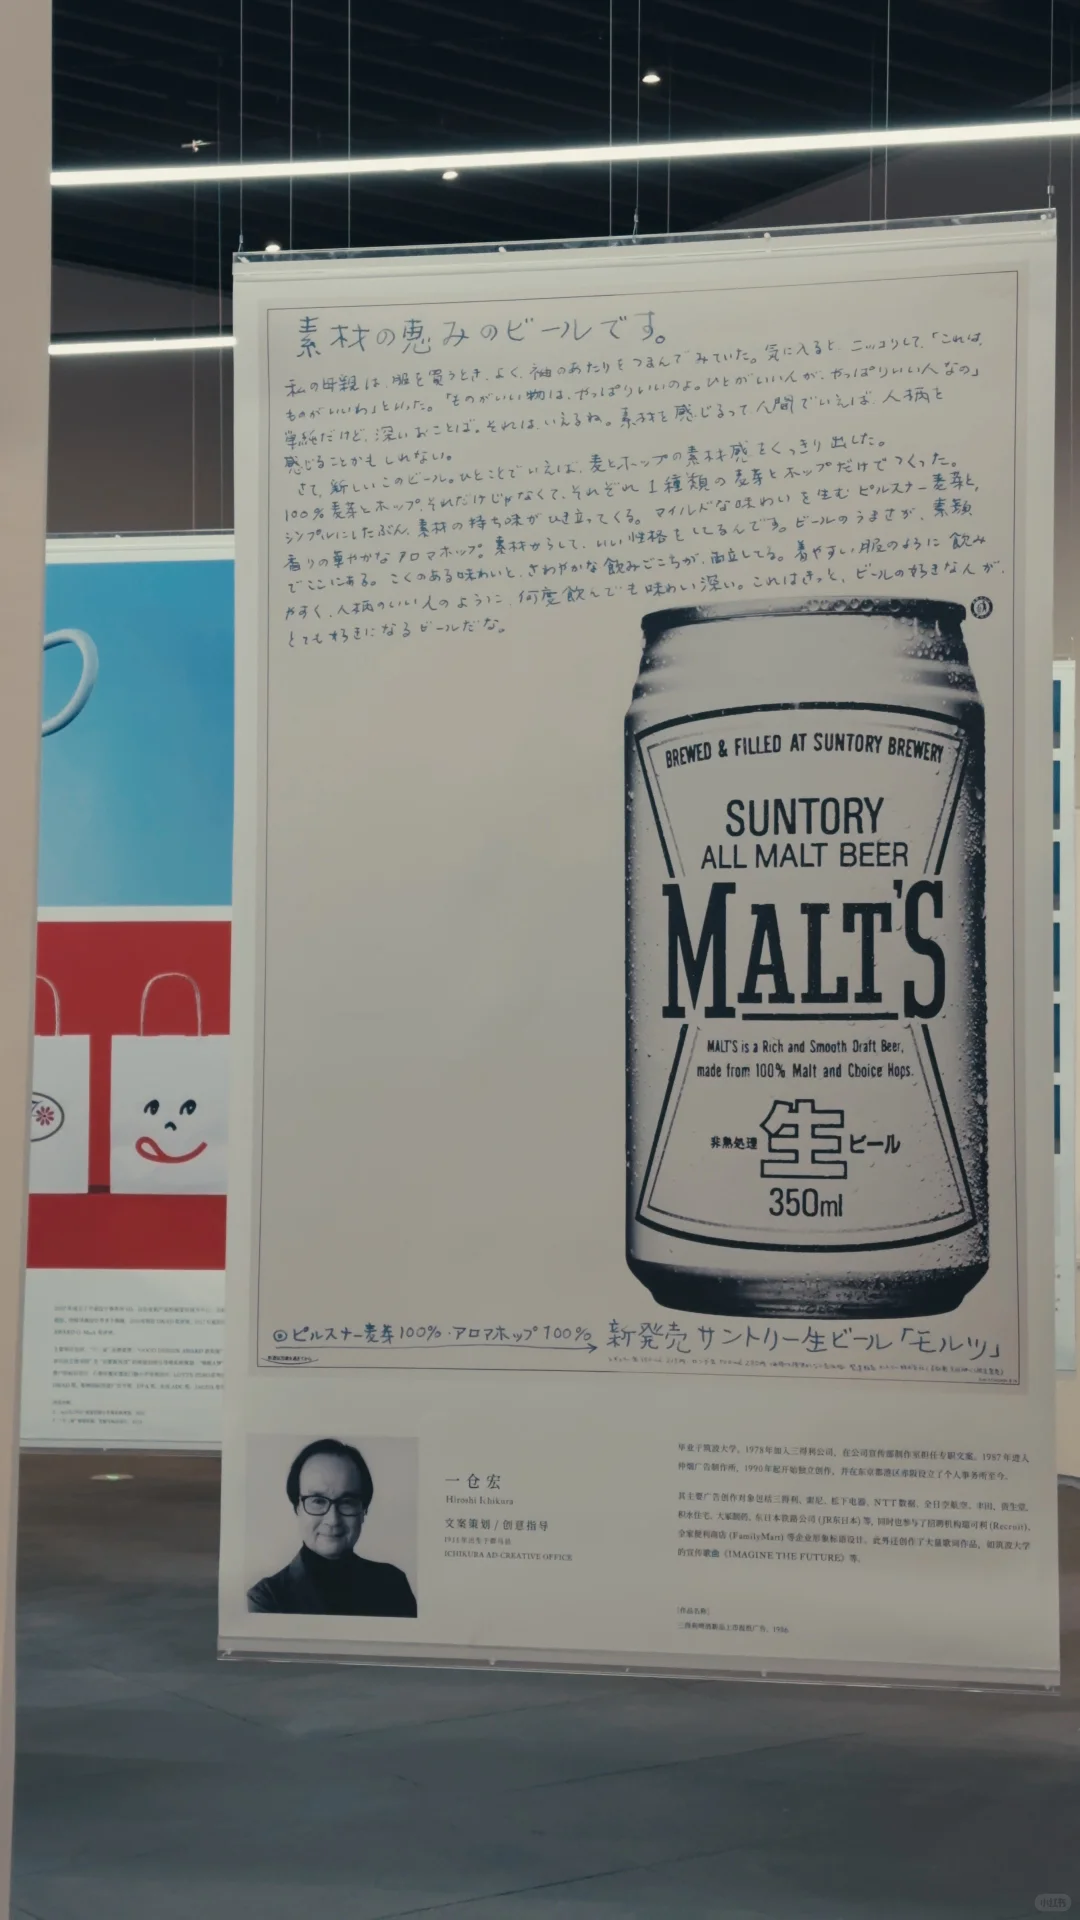 素材の恵みのビールです。
私の母親は、服を買うとき、よく、袖のあたりをつまんでみていた。気に入ると、ニッコリして、「これは、
ものがいいわ」といった。「ものがいい物は、やっぱりいいのよ。ひとがいい人が、やっぱりいい人なの」
単純だけど、深いおことば。それは、いえるね。素材を感じるって、人間でいえば、人柄を
感じることかもしれない。
さて、新しいこのビール。ひとことでいえば、麦とホップの素材感をくっきり出した。
100%麦芽とホップ、それだけじゃなくて、それぞれ1種類の麦芽とホップだけでつくった。
シンプルにしたぶん、素材の持ち味がひき立ってくる。マイルドな味わいを生むピルスナー麦芽と、
香りの華やかなアロマホップ。素材からして、いい性格をしてるんです。ビールのうまさが、素顔
でここにある。こくのある味わいと、さわやかな飲みごこちが、両立してる。着やすい服のように飲み
やすく、人柄のいい人のように、何度飲んでも味わい深い。これはきっと、ビールの好きな人が、
とても好きになるビールだな。
BREWED & FILLED AT SUNTORY BREWERY
SUNTORY
ALL MALT BEER
MALT'S
MALT'S is a Rich and Smooth Draft Beer,
made from 100% Malt and Choice Hops.
非熱処理 生 ビール
350ml
ピルスナー麦芽100%・アロマホップ100% 新発売 サントリー生ビール「モルツ」
一仓宏
Hiroshi Ichikura
文案策划 / 创意指导
1955年出生于群马县
ICHIKURA AD-CREATIVE OFFICE
毕业于筑波大学，1978年加入三得利公司，在公司宣传部制作室担任专职文案。1987年进入
仲畑广告制作所，1990年起开始独立创作，并在东京都港区赤阪设立了个人事务所至今。
其主要广告创作对象包括三得利、索尼、松下电器、NTT数据、全日空航空、丰田、资生堂、
积水住宅、大冢制药、东日本铁路公司 (JR东日本) 等，同时也参与了招聘机构瑞可利 (Recruit)、
全家便利商店 (FamilyMart) 等企业形象标语设计。此外还创作了大量歌词作品，如筑波大学
的宣传歌曲《IMAGINE THE FUTURE》等。
[作品名称]
三得利啤酒新品上市报纸广告，1986
小红书